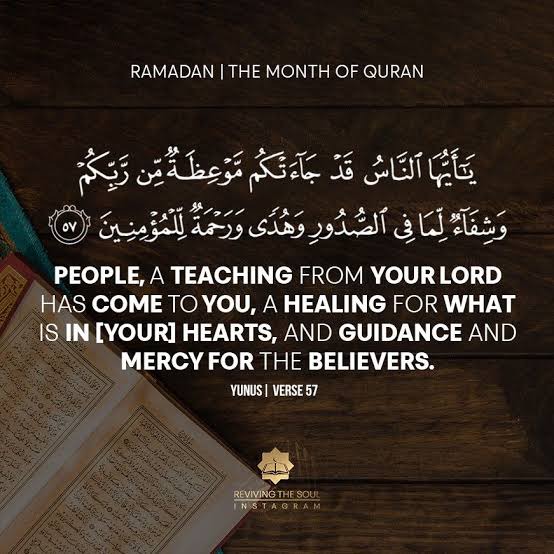 RAMADAN | THE MONTH OF QURAN
يَـٰٓأَيُّهَا ٱلنَّاسُ قَدْ جَآءَتْكُم مَّوْعِظَةٌ مِّن رَّبِّكُمْ
وَشِفَآءٌ لِّمَا فِى ٱلصُّدُورِ وَهُدًى وَرَحْمَةٌ لِّلْمُؤْمِنِينَ ٥٧
PEOPLE, A TEACHING FROM YOUR LORD
HAS COME TO YOU, A HEALING FOR WHAT
IS IN [YOUR] HEARTS, AND GUIDANCE AND
MERCY FOR THE BELIEVERS.
YUNUS | VERSE 57
REVIVING THE SOUL
INSTAGRAM